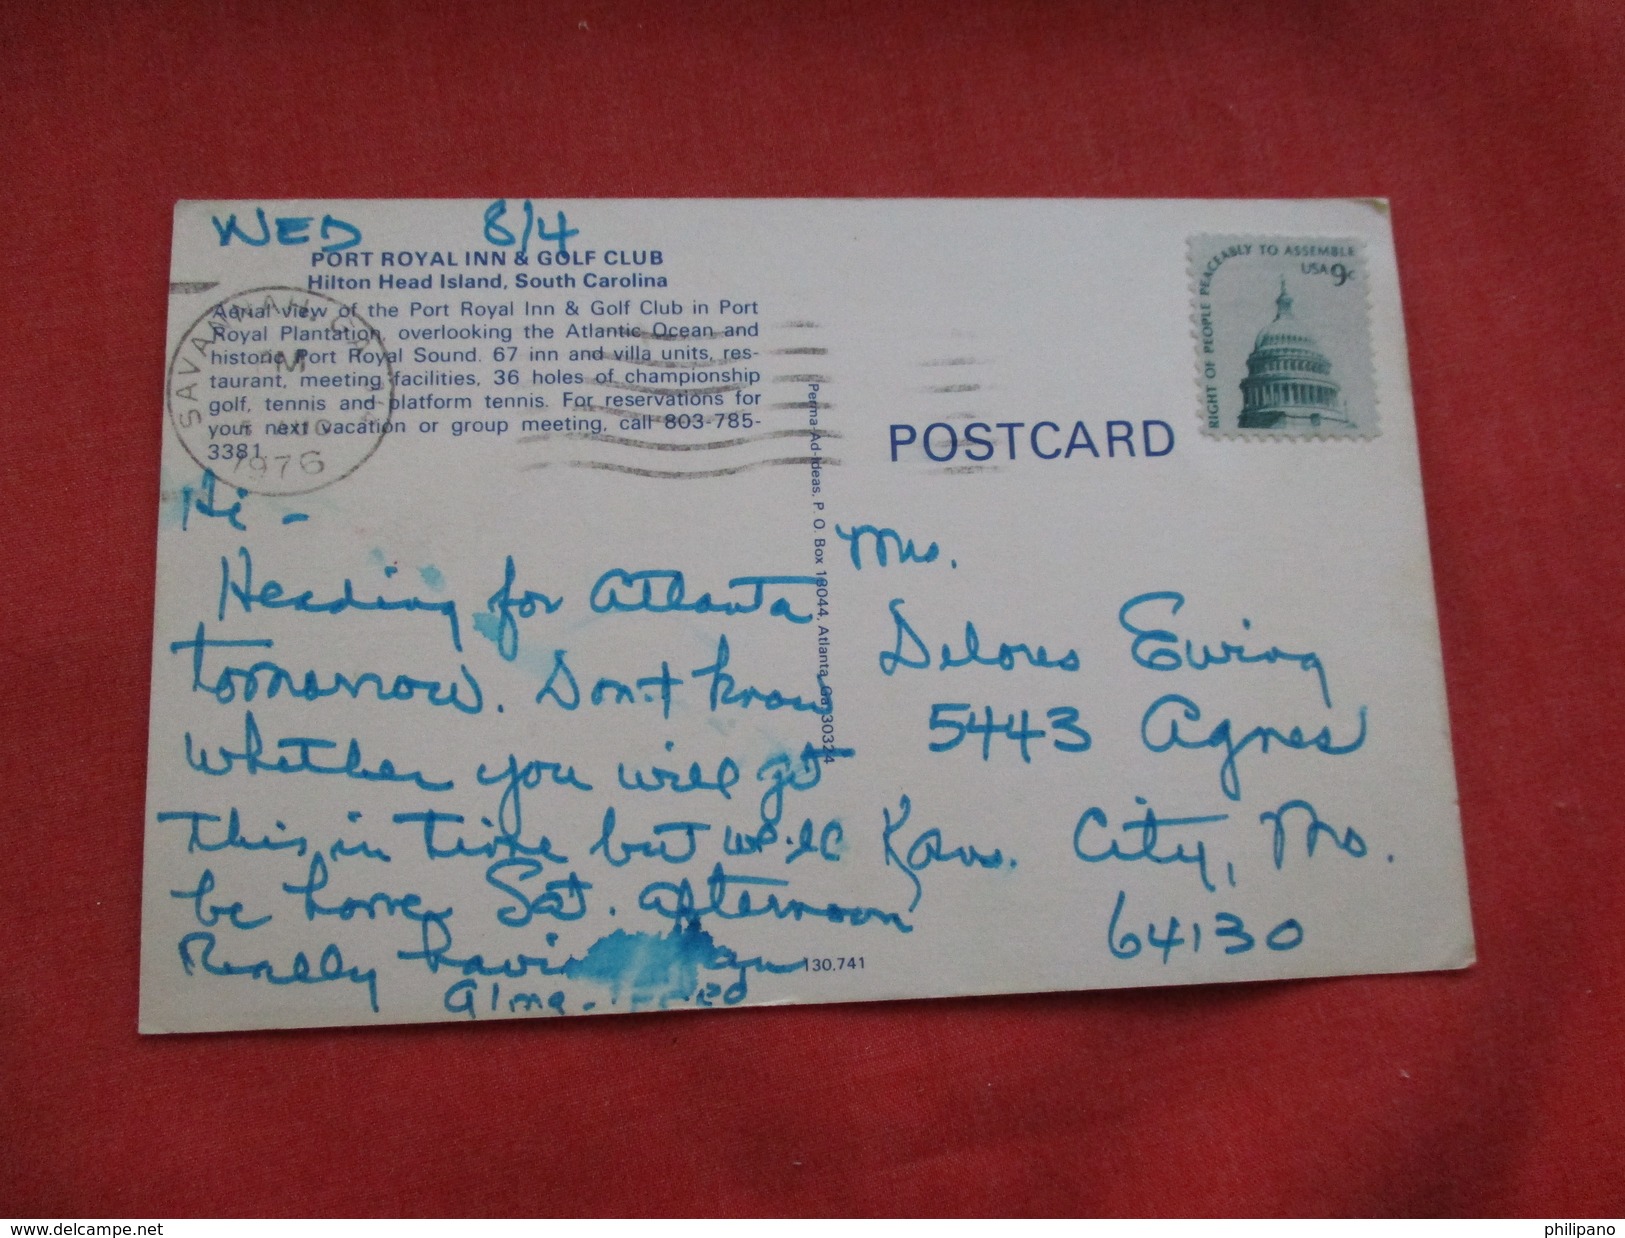 WED 8/4
PORT ROYAL INN & GOLF CLUB
Hilton Head Island, South Carolina
Aerial view of the Port Royal Inn & Golf Club in Port
Royal Plantation overlooking the Atlantic Ocean and
historic Port Royal Sound. 67 inn and villa units, res-
taurant, meeting facilities, 36 holes of championship
golf, tennis and platform tennis. For reservations for
your next vacation or group meeting, call 803-785-
3381.
SAVANNAH, GA
M
1976
Hi -
Heading for Atlanta
tomorrow. Don't know
whether you will get
this in time but will
be home Sat. afternoon
Really
Alma
130.741
Perma-Ad-Ideas, P. O. Box 18044, Atlanta, Ga. 30324
POSTCARD
RIGHT OF PEOPLE PEACEABLY TO ASSEMBLE
USA 9c
Mrs.
Delores Ewing
5443 Agnes
Kans. City, Mo.
64130
www.delcampe.net
philipano